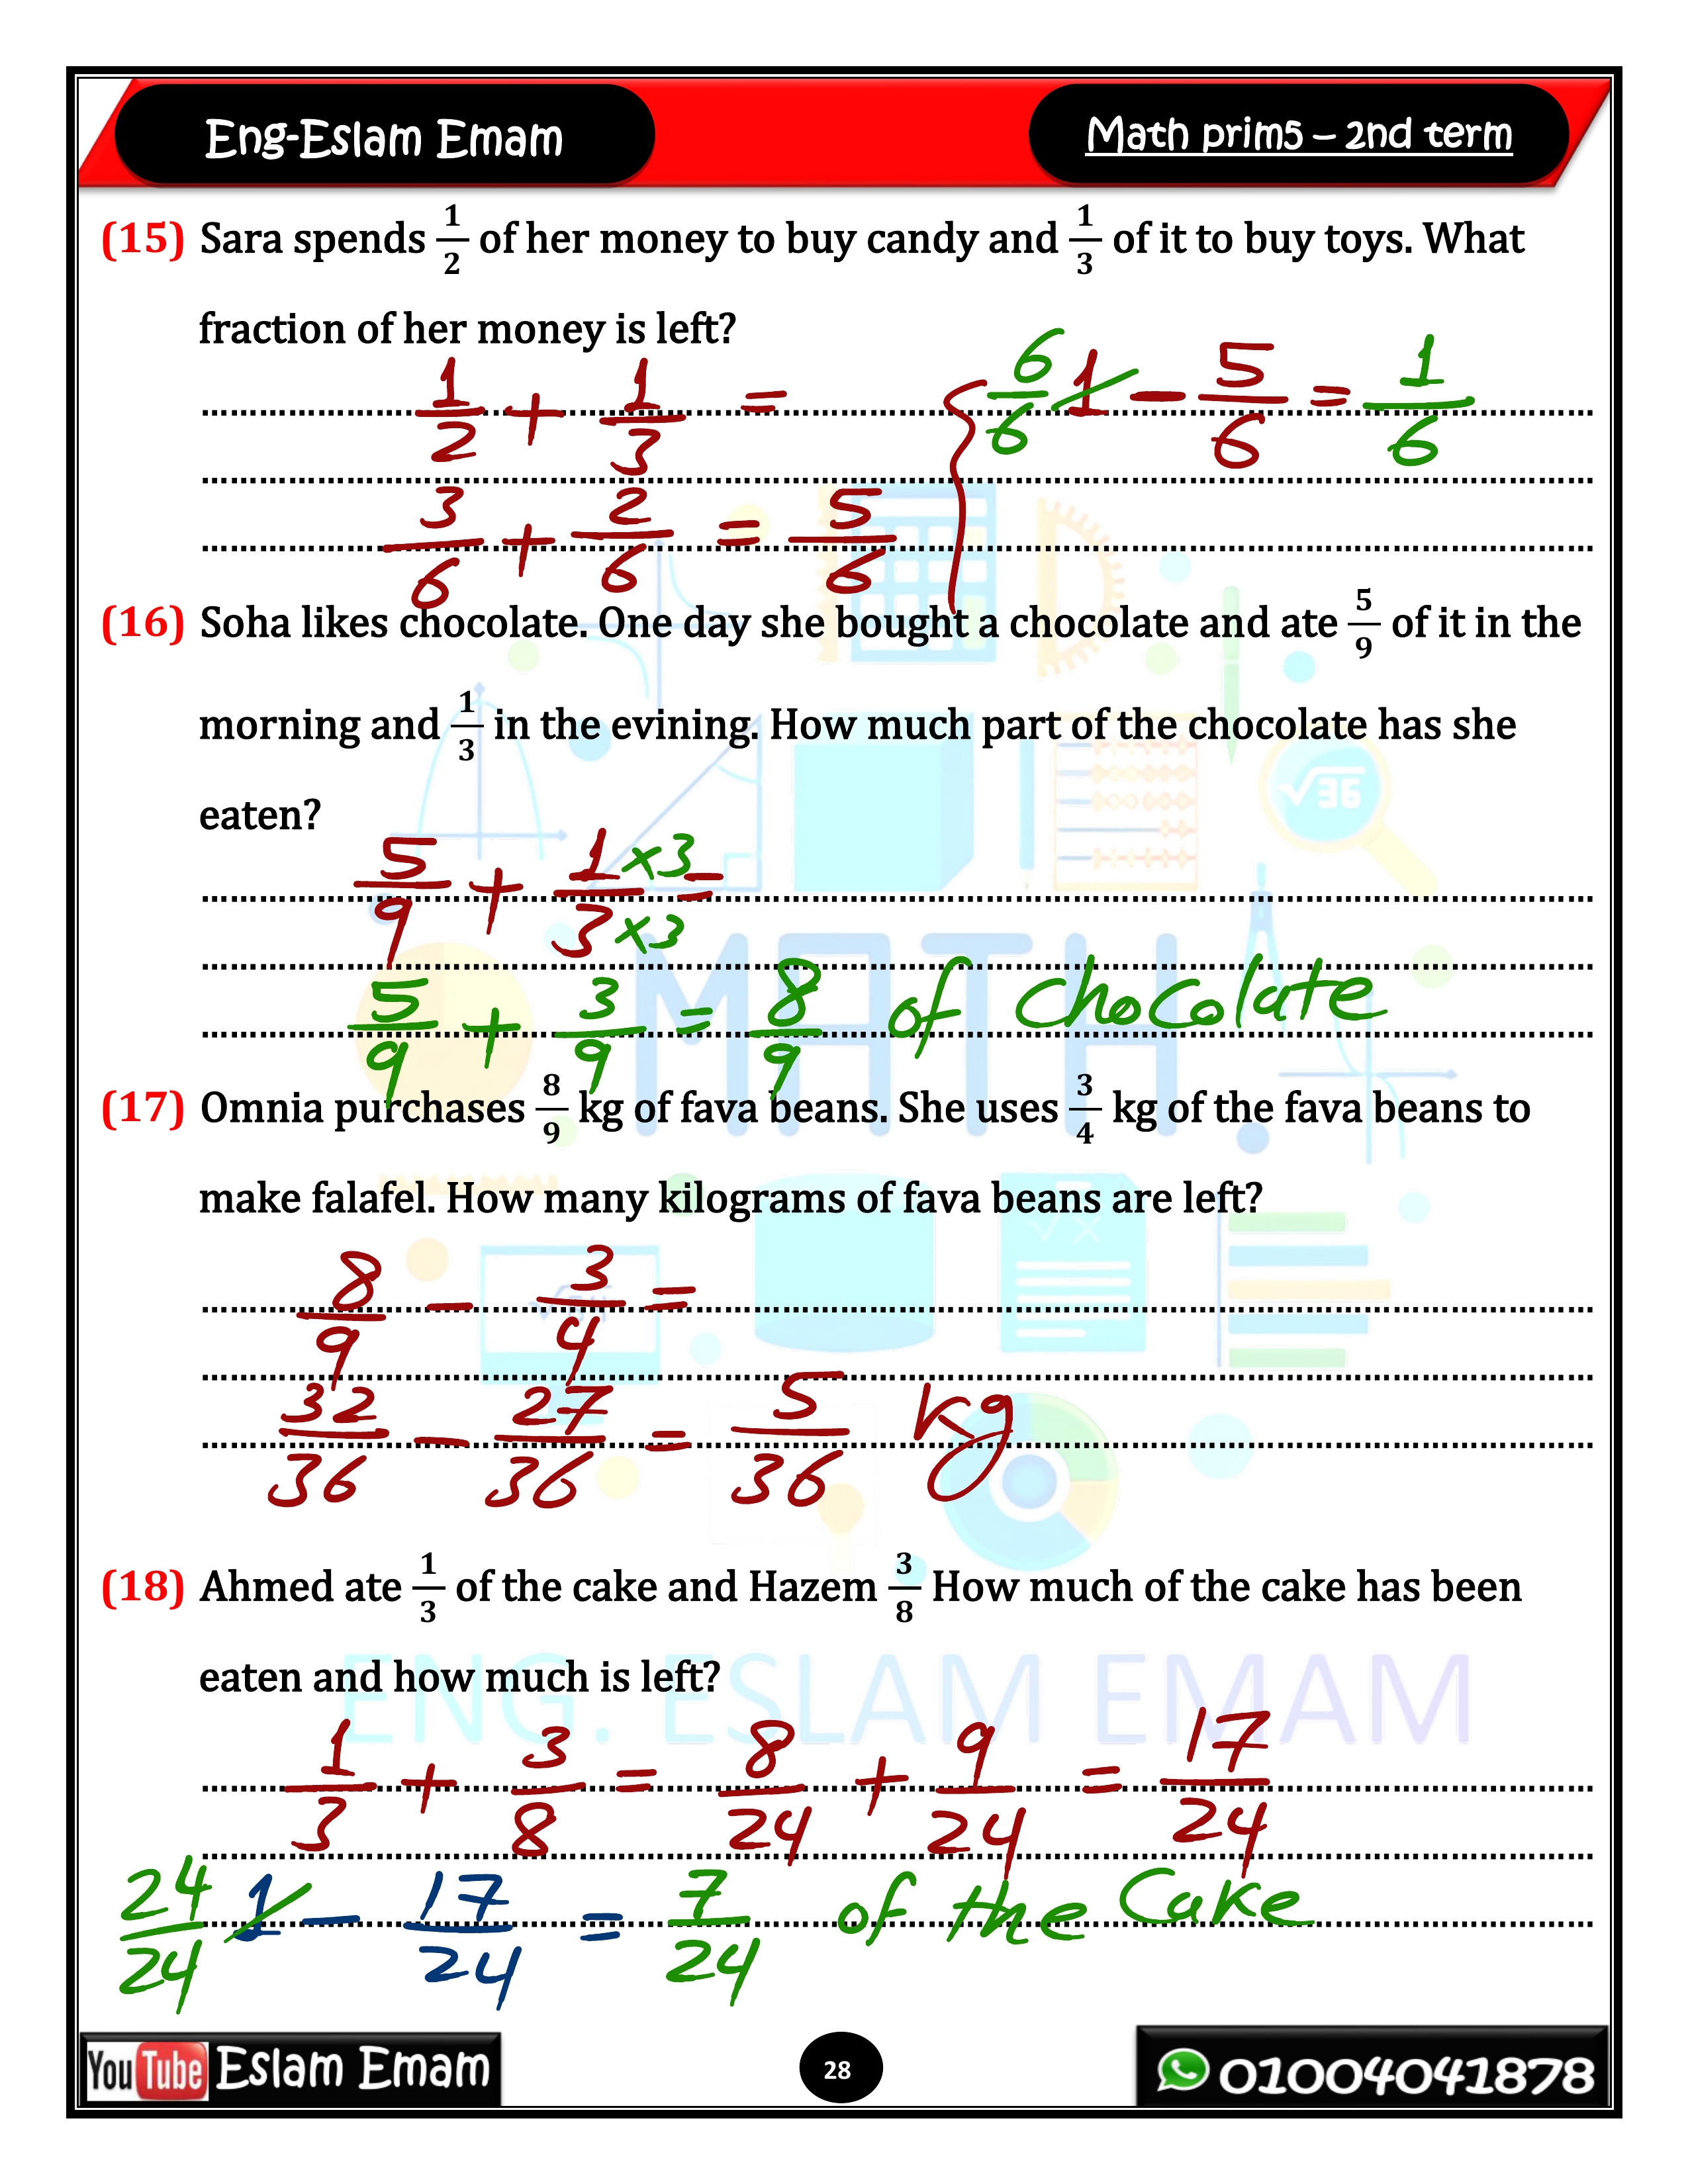 Eng-Eslam Emam
Math prim5 – 2nd term
(15) Sara spends 1/2 of her money to buy candy and 1/3 of it to buy toys. What
fraction of her money is left?
1/2 + 1/3 =
6/6 1 - 5/6 = 1/6
3/6 + 2/6 = 5/6
(16) Soha likes chocolate. One day she bought a chocolate and ate 5/9 of it in the
morning and 1/3 in the evining. How much part of the chocolate has she
eaten?
√36
5/9 + 1×3/3×3 =
MATH
5/9 + 3/9 = 8/9 of chocolate
(17) Omnia purchases 8/9 kg of fava beans. She uses 3/4 kg of the fava beans to
make falafel. How many kilograms of fava beans are left?
8/9 - 3/4 =
32/36 - 27/36 = 5/36 kg
(18) Ahmed ate 1/3 of the cake and Hazem 3/8 How much of the cake has been
eaten and how much is left?
ENG. ESLAM EMAM
1/3 + 3/8 = 8/24 + 9/24 = 17/24
24/24 1 - 17/24 = 7/24 of the Cake
YouTube Eslam Emam
28
01004041878